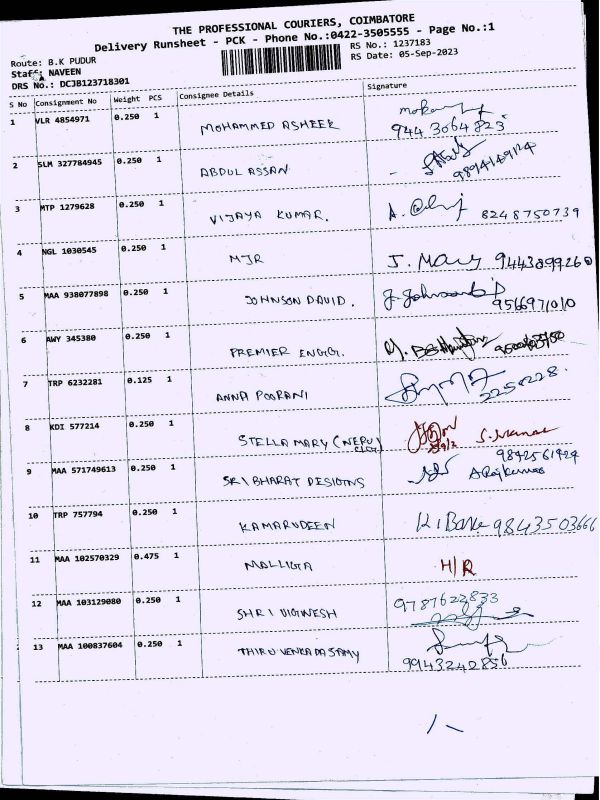 THE PROFESSIONAL COURIERS, COIMBATORE
Delivery Runsheet - PCK - Phone No.:0422-3505555 - Page No.:1
Route: B.K PUDUR RS No.: 1237183
Staff: NAVEEN RS Date: 05-Sep-2023
DRS No.: DCJB123718301
S No Consignment No Weight PCS Consignee Details Signature
1 VLR 4854971 0.250 1 MOHAMMED ASHEEK
9443064823
2 SLM 327784945 0.250 1 ABDUL ASSAN
3 MTP 1279628 0.250 1 VIJAYA KUMAR. A. 8248750739
4 NGL 1030545 0.250 1 MJR J. Mary 9443899260
5 MAA 938077898 0.250 1 JOHNSON DAVID. J. Johnson
9566971010
6 AWY 345380 0.250 1 PREMIER ENGG.
7 TRP 6232281 0.125 1 ANNA POORANI
2250228.
8 KDI 577214 0.250 1 STELLA MARY (NEPU
9842561924
9 MAA 571749613 0.250 1 SRI BHARAT DESIGTNS A Rajkumar
10 TRP 757794 0.250 1 KAMARUDEEN 9843503666
11 MAA 102570329 0.475 1 MALLIGA H/R
12 MAA 103129080 0.250 1 SHRI VIGINESH 9787622833
13 MAA 100837604 0.250 1 THIRU VENKADASAMY
9943242856